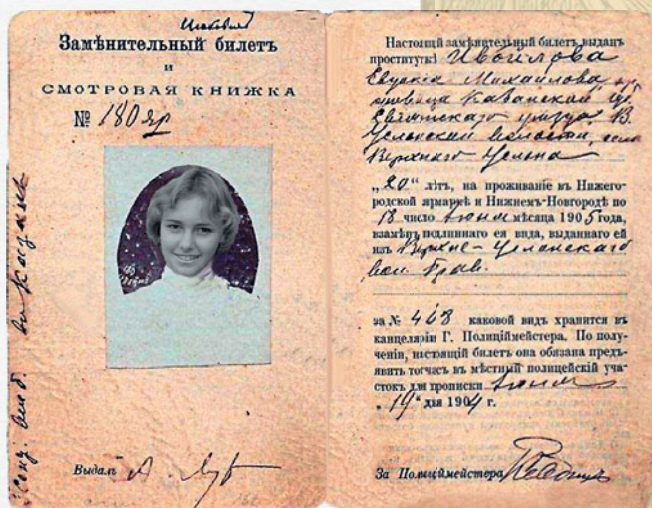 Замѣнительный билетъ
и
СМОТРОВАЯ КНИЖКА
№ 180 яр
Выдалъ
Настоящій замѣнительный билетъ выданъ
проституткѣ Ивойлова
Михайлова
Казанской
В.
волости, села
Верхняго Услона
„20“ лѣтъ, на проживаніе въ Нижего-
родской ярмаркѣ и Нижнемъ-Новгородѣ по
18 число мѣсяца 1905 года,
взамѣнъ подлиннаго ея вида, выданнаго ей
изъ Верхне-Услонскаго
вол. Прав.
за № 468 каковой видъ хранится въ
канцеляріи Г. Полиціймейстера. По полу-
ченіи, настоящій билетъ она обязана предъ-
явить тотчасъ въ мѣстный полицейскій уча-
стокъ для прописки
„19“ дня 1904 г.
За Полиціймейстера